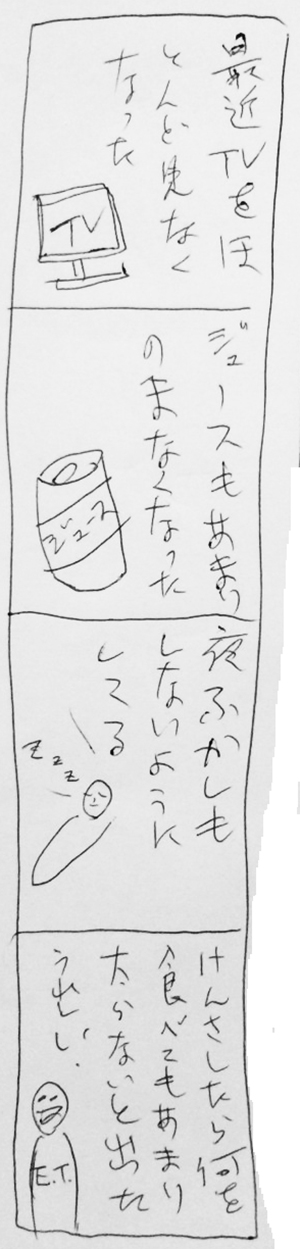 最近TVをほ
とんど見なく
なった
TV
ジュースもあまり
のまなくなった
ジュース
夜ふかしも
しないように
してる
zzz
けんさしたら何を
食べてもあまり
太らないと出た
うれしい.
E.T.